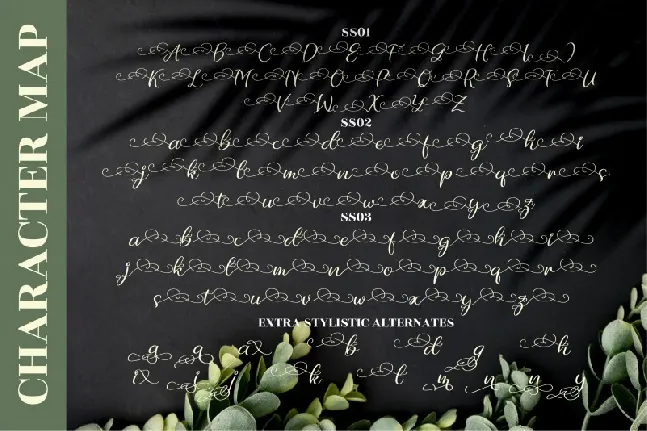 CHARACTER MAP
SS01
A B C D E F G H I J
K L M N O P Q R S T U
V W X Y Z
SS02
a b c d e f g h i
j k l m n o p q r s
t u v w x y z
SS03
a b c d e f g h i
j k l m n o p q r
s t u v w x y z
EXTRA STYLISTIC ALTERNATES